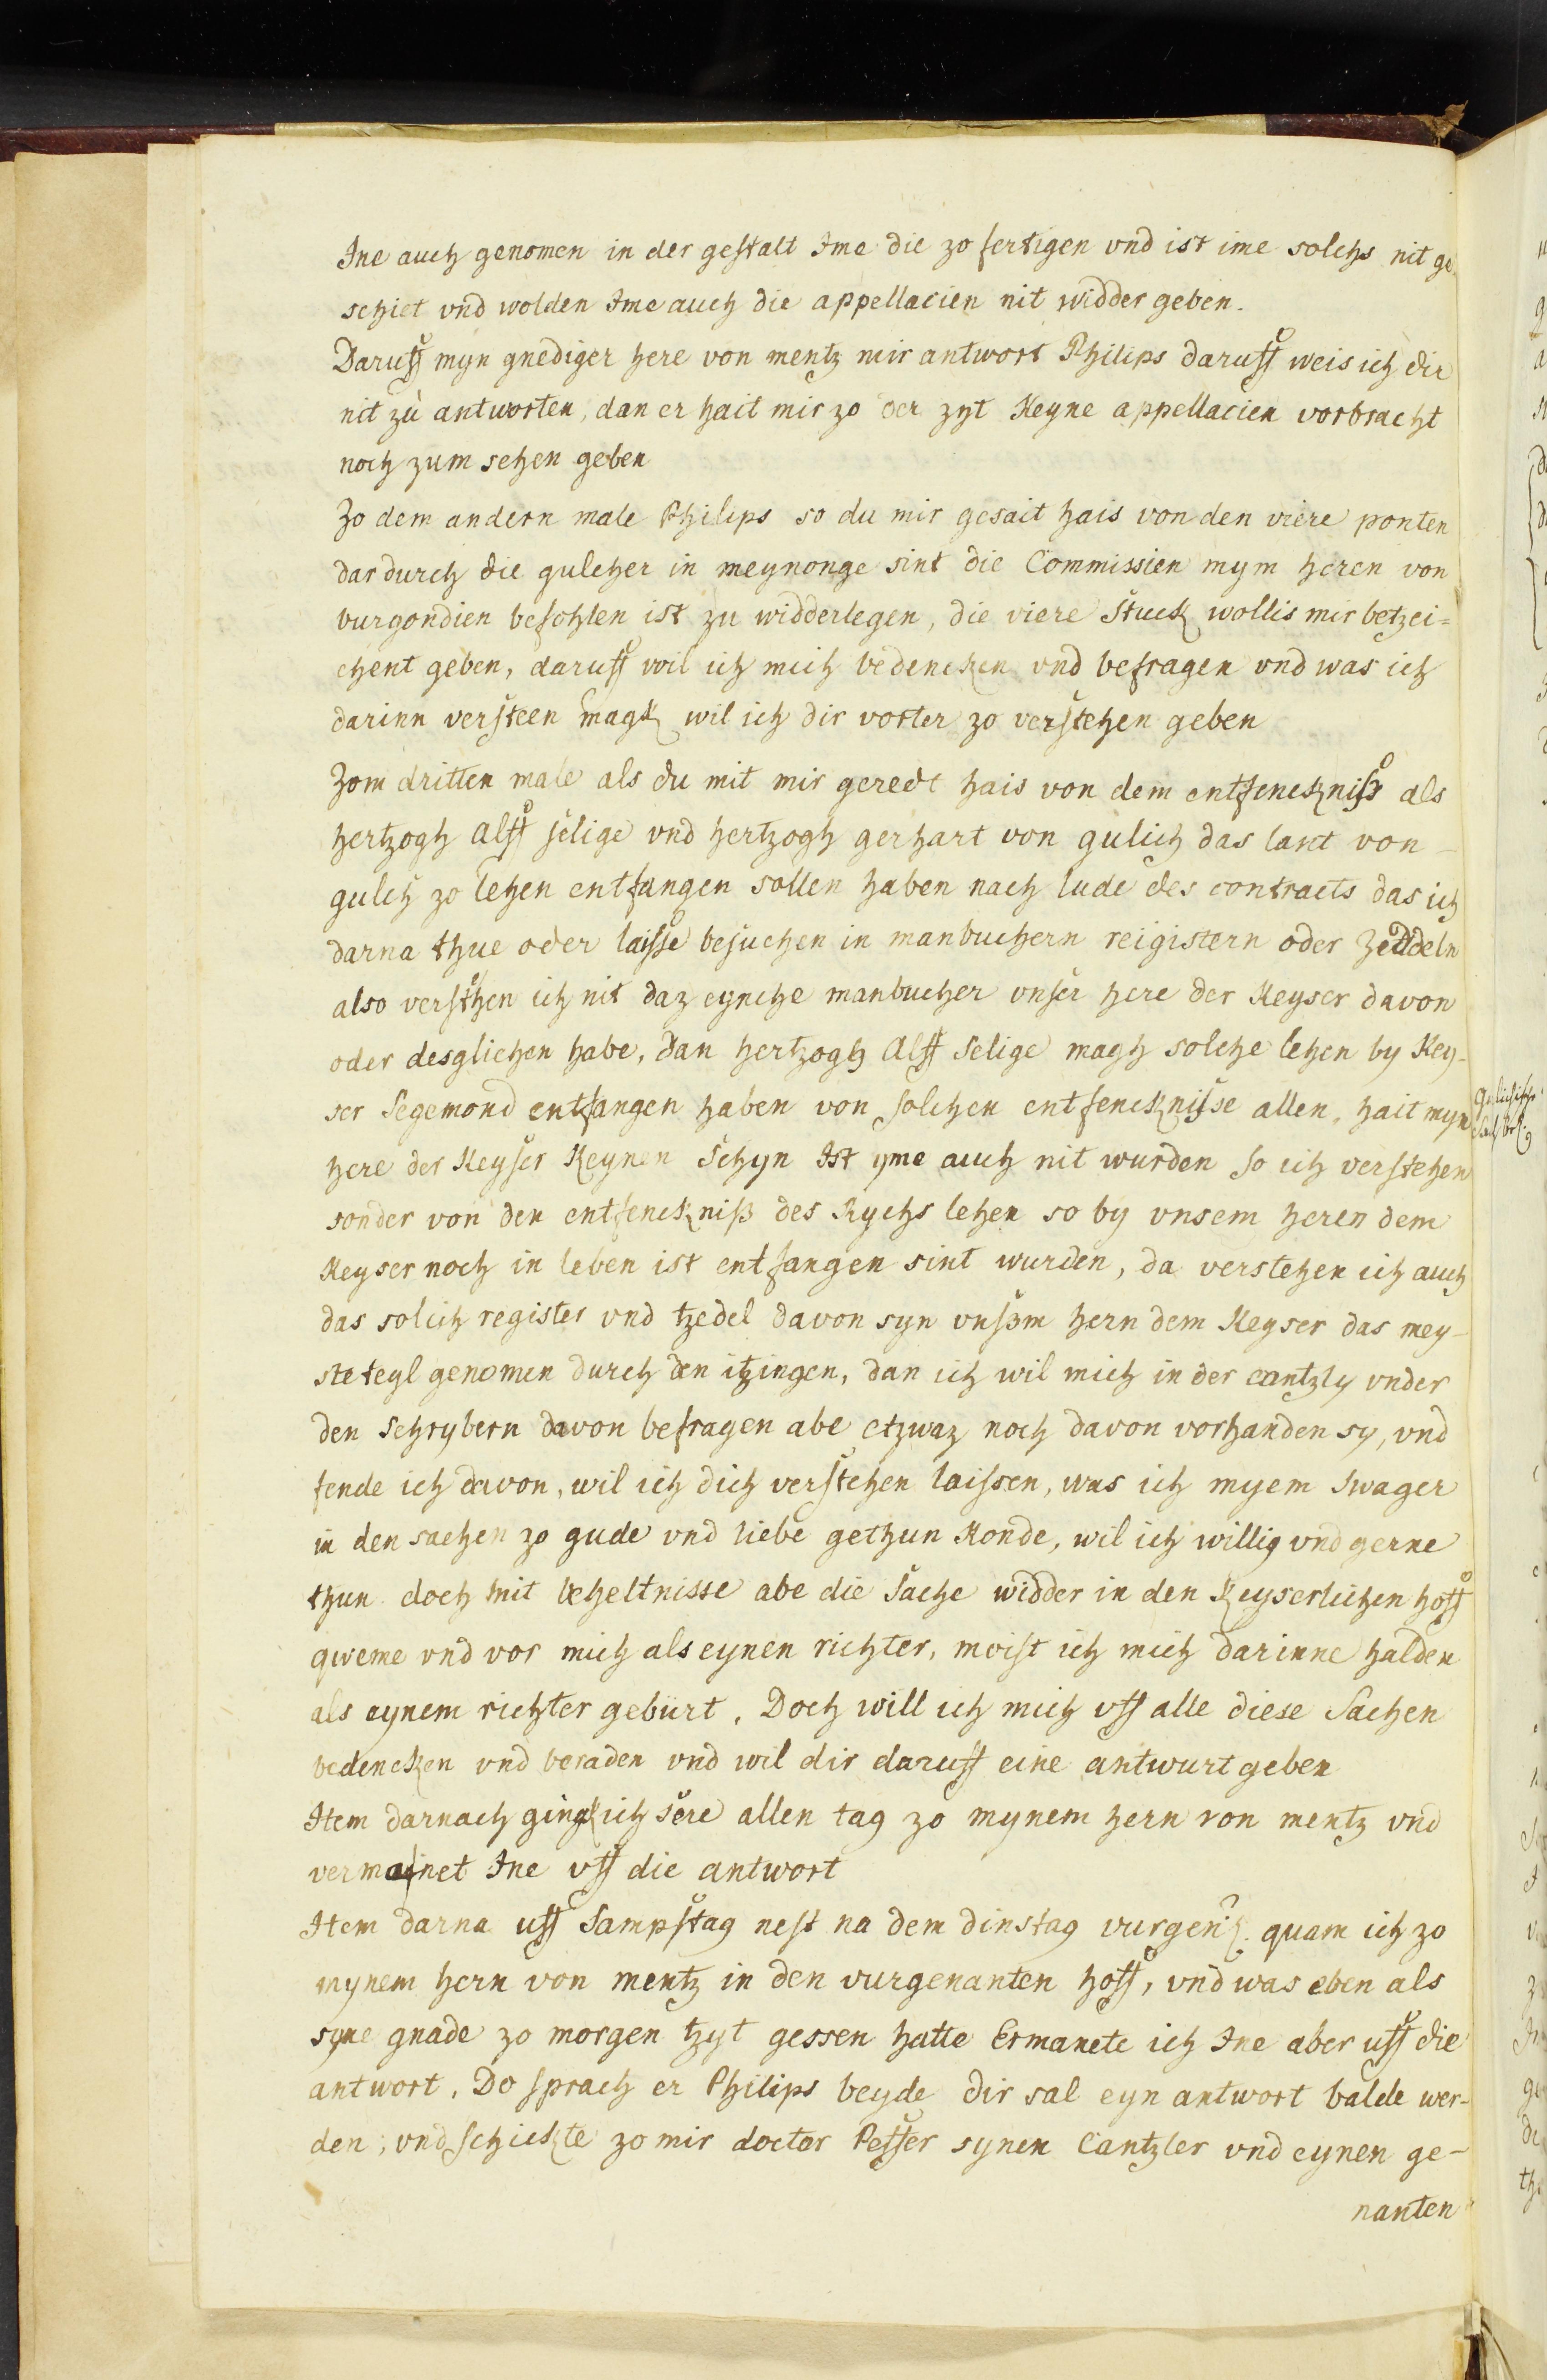 Ine auch genomen in der gestalt Ime die zo fertigen vnd ist ime solchs nit ge
schiet vnd wolden Ime auch die appellacien nit widder geben.
Daruff myn gnediger here von mentz mir antwort Philips daruff weis ich dir
nit zù antworten, dan er hait mir zo der zyt Keyne appellacien vorbracht
noch zum sehen geben
Zo dem andern male Philips so du mir gesait hais von den viere ponten
dar durch die gulcher in meynonge sint die Commissien mym heren von
burgondien befohlen ist zu widderlegen, die viere stuck wollis mir betzei=
chent geben, daruff wil ich mich bedencken vnd befragen vnd was ich
darinn versteen magk wil ich dir vorter zo verstehen geben
Zom dritten male als du mit mir geredt hais von dem entfenckniß als
hertzogh alff selige vnd hertzogh gerhart von gulich das lant von
gulch zo lehen entfangen sollen haben nach lude des contracts das ich
darna thue oder laisse besuchen in manbuchern reigistern oder Zeddeln
also versthen ich nit daz eynche manbucher vnser here der Keyser davon
oder desglichen habe, dan hertzogh Alff selige magh solche lehen by Key-
ser Segemond entfangen haben von solchen entfencknisse allen, hait myn
here der Keyser Keynen Schyn Ist yme auch nit wurden so ich verstehen
sonder von den entfenckniß des Rychs lehen so by vnsem heren dem
Keyser noch in leben ist entfangen sint wurden, da verstehen ich auch
das solich register vnd tzedel davon syn vnsem hern dem Keyser das mey-
ste teyl genomen durch den itzingen, dan ich wil mich in der cantzly vnder
den Schrybern davon befragen abe etzwaz noch davon vorhanden sy, vnd
fende ich davon, wil ich dich verstehen laissen, was ich myem Swager
in den sachen zo gude vnd liebe gethun Konde, wil ich willig vnd gerne
thun doch mit beheltnisse abe die Sache widder in den Keyserlichen hoff
qweme vnd vor mich als eynen richter, moist ich mich darinne halden
als eynem richter gebürt. Doch will ich mich vff alle diese Sachen
bedencken vnd beraden vnd wil dir daruff eine antwurt geben
Item darnach gingk ich sere allen tag zo mynem hern von mentz vnd
vermanet Ine vff die antwort
Item darna uff Sampstag nest na dem dinstag vurgen. quam ich zo
mynem hern von mentz in den vurgenanten hoff, vnd was eben als
syne gnade zo morgen tzyt gessen hatte Ermanete ich Ine aber uff die
antwort. Do sprach er Philips beyde dir sal eyn antwort balde wer-
den, vnd schickte zo mir doctor Peffer synen Cantzler vnd eynen ge-
nanten